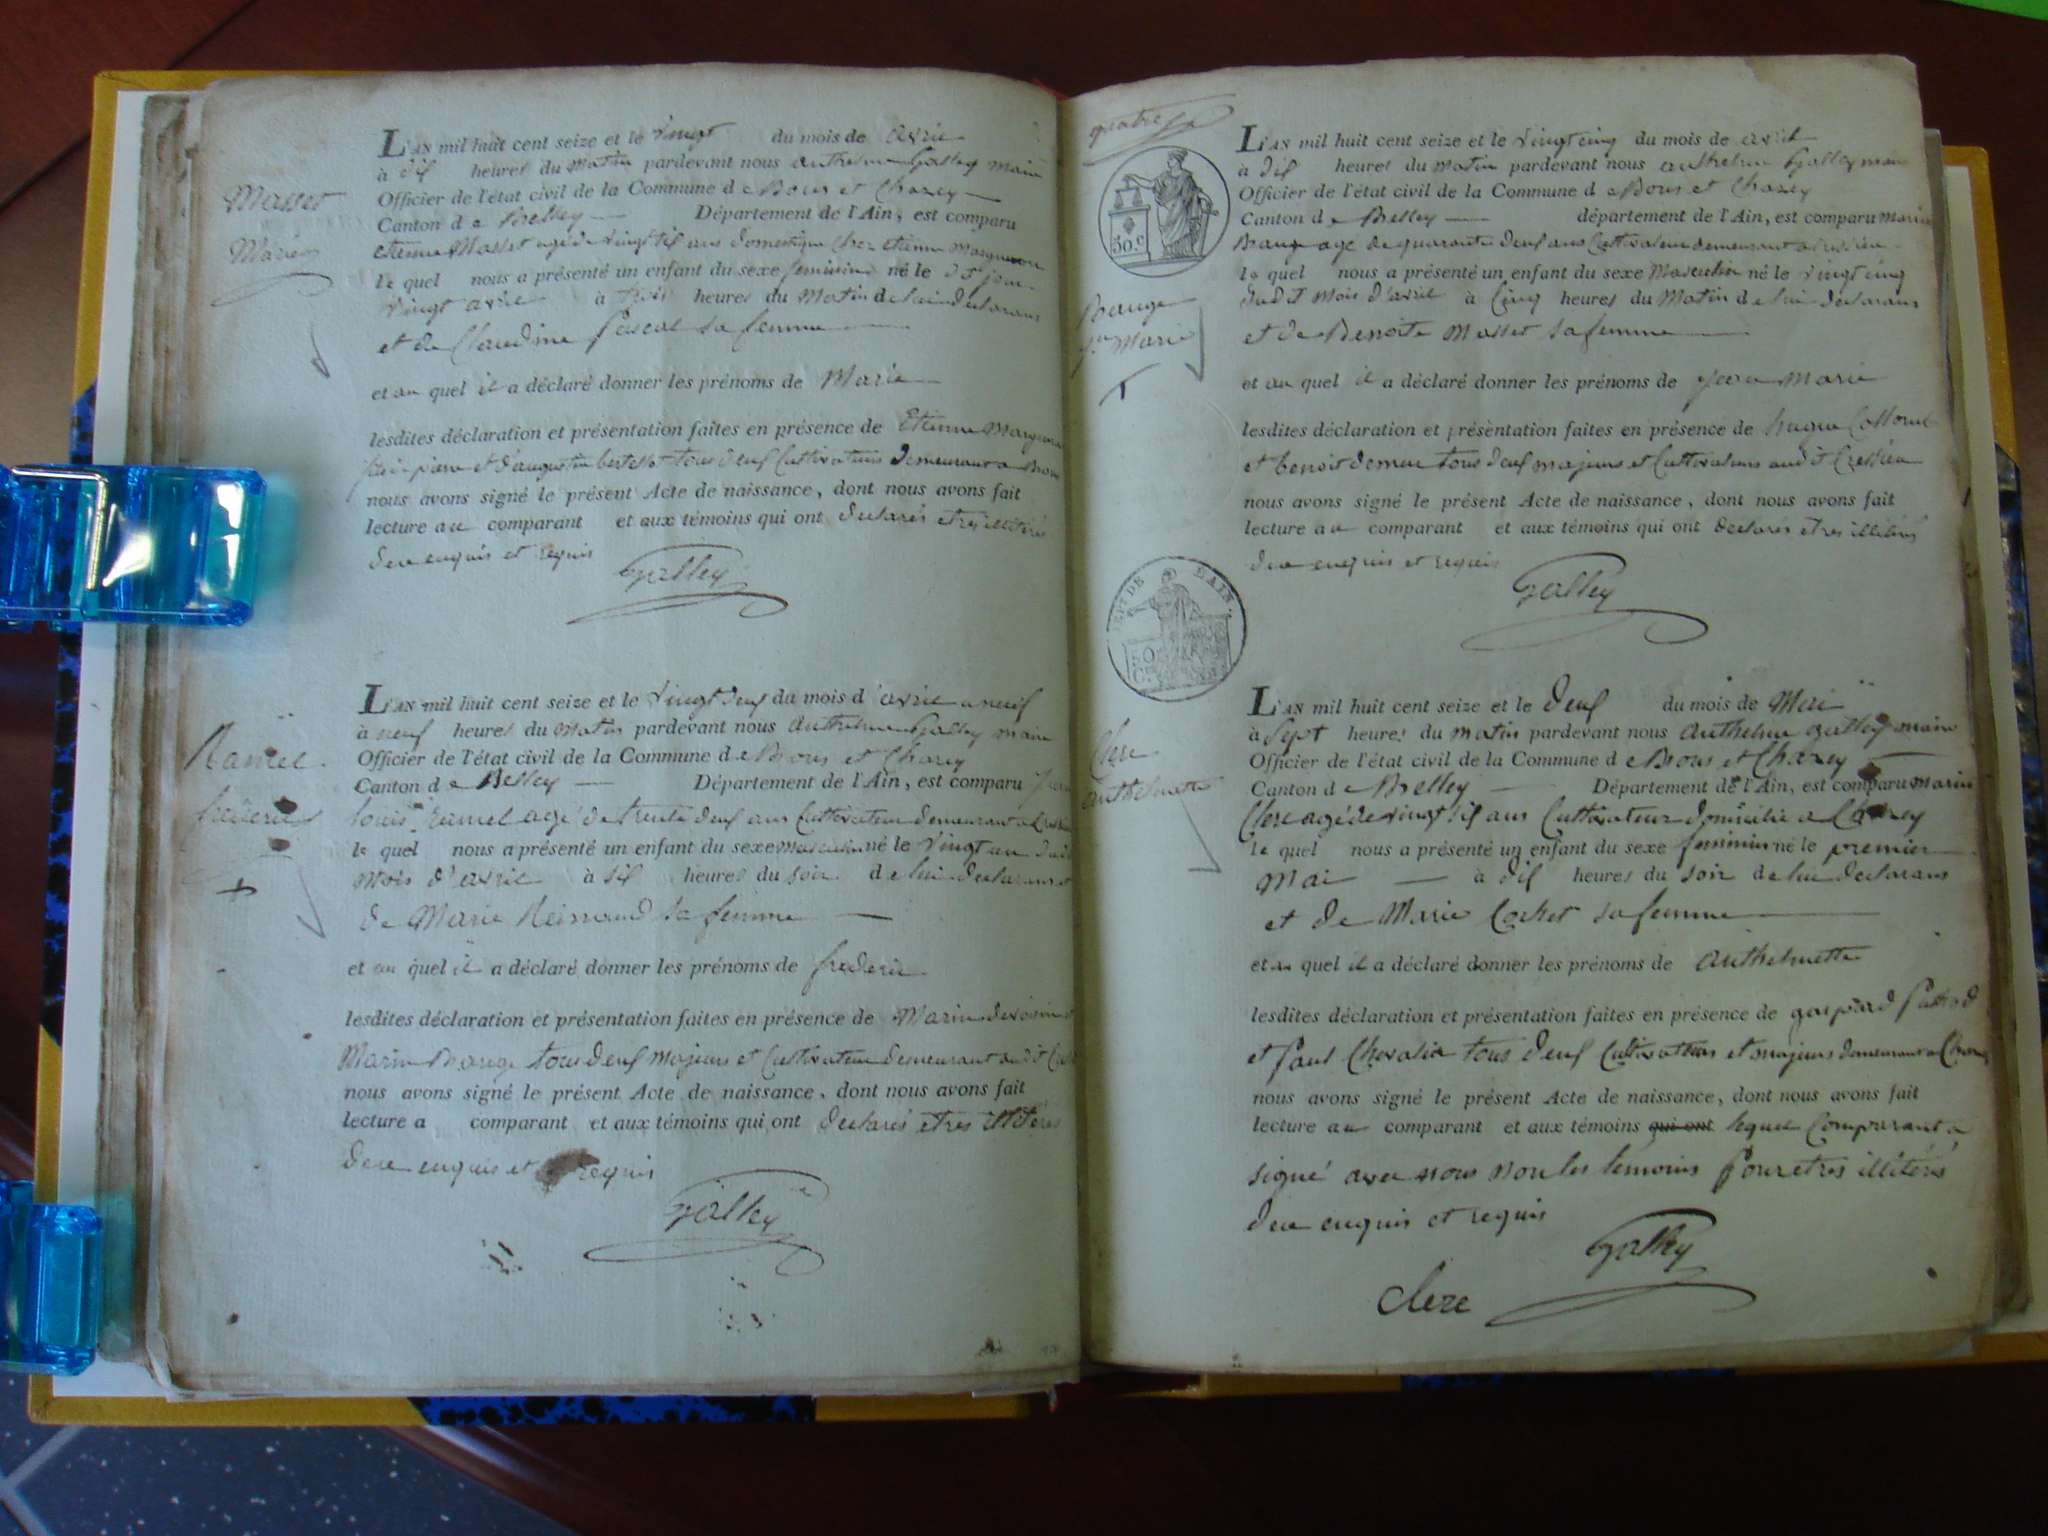 Masset
Marie
L'an mil huit cent seize et le vingt du mois de avril
à dix heures du matin pardevant nous anthelme Galley maire
Officier de l'état civil de la Commune de Bons et Chazey
Canton de Belley Département de l'Ain, est comparu
etienne Masset agé de vingt six ans domestique chez etienne
le quel nous a présenté un enfant du sexe feminin né le dt jour
vingt avril à trois heures du matin de lui declarans
et de Claudine Pascal sa femme
et au quel il a déclaré donner les prénoms de Marie
lesdites déclaration et présentation faites en présence de Etienne
et d'augustin tous deux Cultivateurs demeurant a Bons
nous avons signé le présent Acte de naissance, dont nous avons fait
lecture au comparant et aux témoins qui ont declarés etres illitérés
de ce enquis et requis
Galley
Ramel
frederic
L'an mil huit cent seize et le vingt deux du mois d'avril a neuf
à neuf heures du matin pardevant nous Anthelme Galley maire
Officier de l'état civil de la Commune de Bons et Chazey
Canton de Belley Département de l'Ain, est comparu
Louis Ramel agé de trente deux ans Cultivateur demeurant a
le quel nous a présenté un enfant du sexe masculin né le vingt un dudit
mois d'avril à six heures du soir de lui declarans et
de Marie Reimond sa femme
et au quel il a déclaré donner les prénoms de frederic
lesdites déclaration et présentation faites en présence de Marin
Marin Bauge tous deux majeurs et Cultivateurs demeurant audit
nous avons signé le présent Acte de naissance, dont nous avons fait
lecture a comparant et aux témoins qui ont declarés etres illitérés
de ce enquis et requis
Galley
quatre
30.c
L'an mil huit cent seize et le vingt cinq du mois de avril
à dix heures du matin pardevant nous anthelme Galley maire
Officier de l'état civil de la Commune de Bons et Chazey
Canton de Belley département de l'Ain, est comparu marin
Bauge agé de quarante deux ans Cultivateur demeurant a Cressieu
le quel nous a présenté un enfant du sexe Masculin né le vingt cinq
dudit mois d'avril à Cinq heures du Matin de lui declarans
et de Benoite Masset sa femme
Bauge
Jn Marie
et au quel il a déclaré donner les prénoms de jean Marie
lesdites déclaration et présentation faites en présence de hugue
et benoit tous deux majeurs et Cultivateurs audit Cressieu
nous avons signé le présent Acte de naissance, dont nous avons fait
lecture au comparant et aux témoins qui ont declarés etres illitérés
de ce enquis et requis
Galley
DEPT DE L'AIN.
50 C.
Clerc
anthelmette
L'an mil huit cent seize et le deux du mois de Mai
à Sept heures du matin pardevant nous Anthelme Galley maire
Officier de l'état civil de la Commune de Bons et Chazey
Canton de Belley Département de l'Ain, est comparu marin
Clerc agé de vingt six ans Cultivateur domicilié a Chazey
le quel nous a présenté un enfant du sexe feminin né le premier
Mai à dix heures du soir de lui declarans
et de Marie Cochet sa femme
et au quel il a déclaré donner les prénoms de Anthelmette
lesdites déclaration et présentation faites en présence de gaspard
et Paul Chevalier tous deux Cultivateurs et majeurs demeurant a Chazey
nous avons signé le présent Acte de naissance, dont nous avons fait
lecture au comparant et aux témoins qui ont lequel Comparant a
signé avec nous non les témoins Pour etres illitérés
de ce enquis et requis
Galley
Clerc